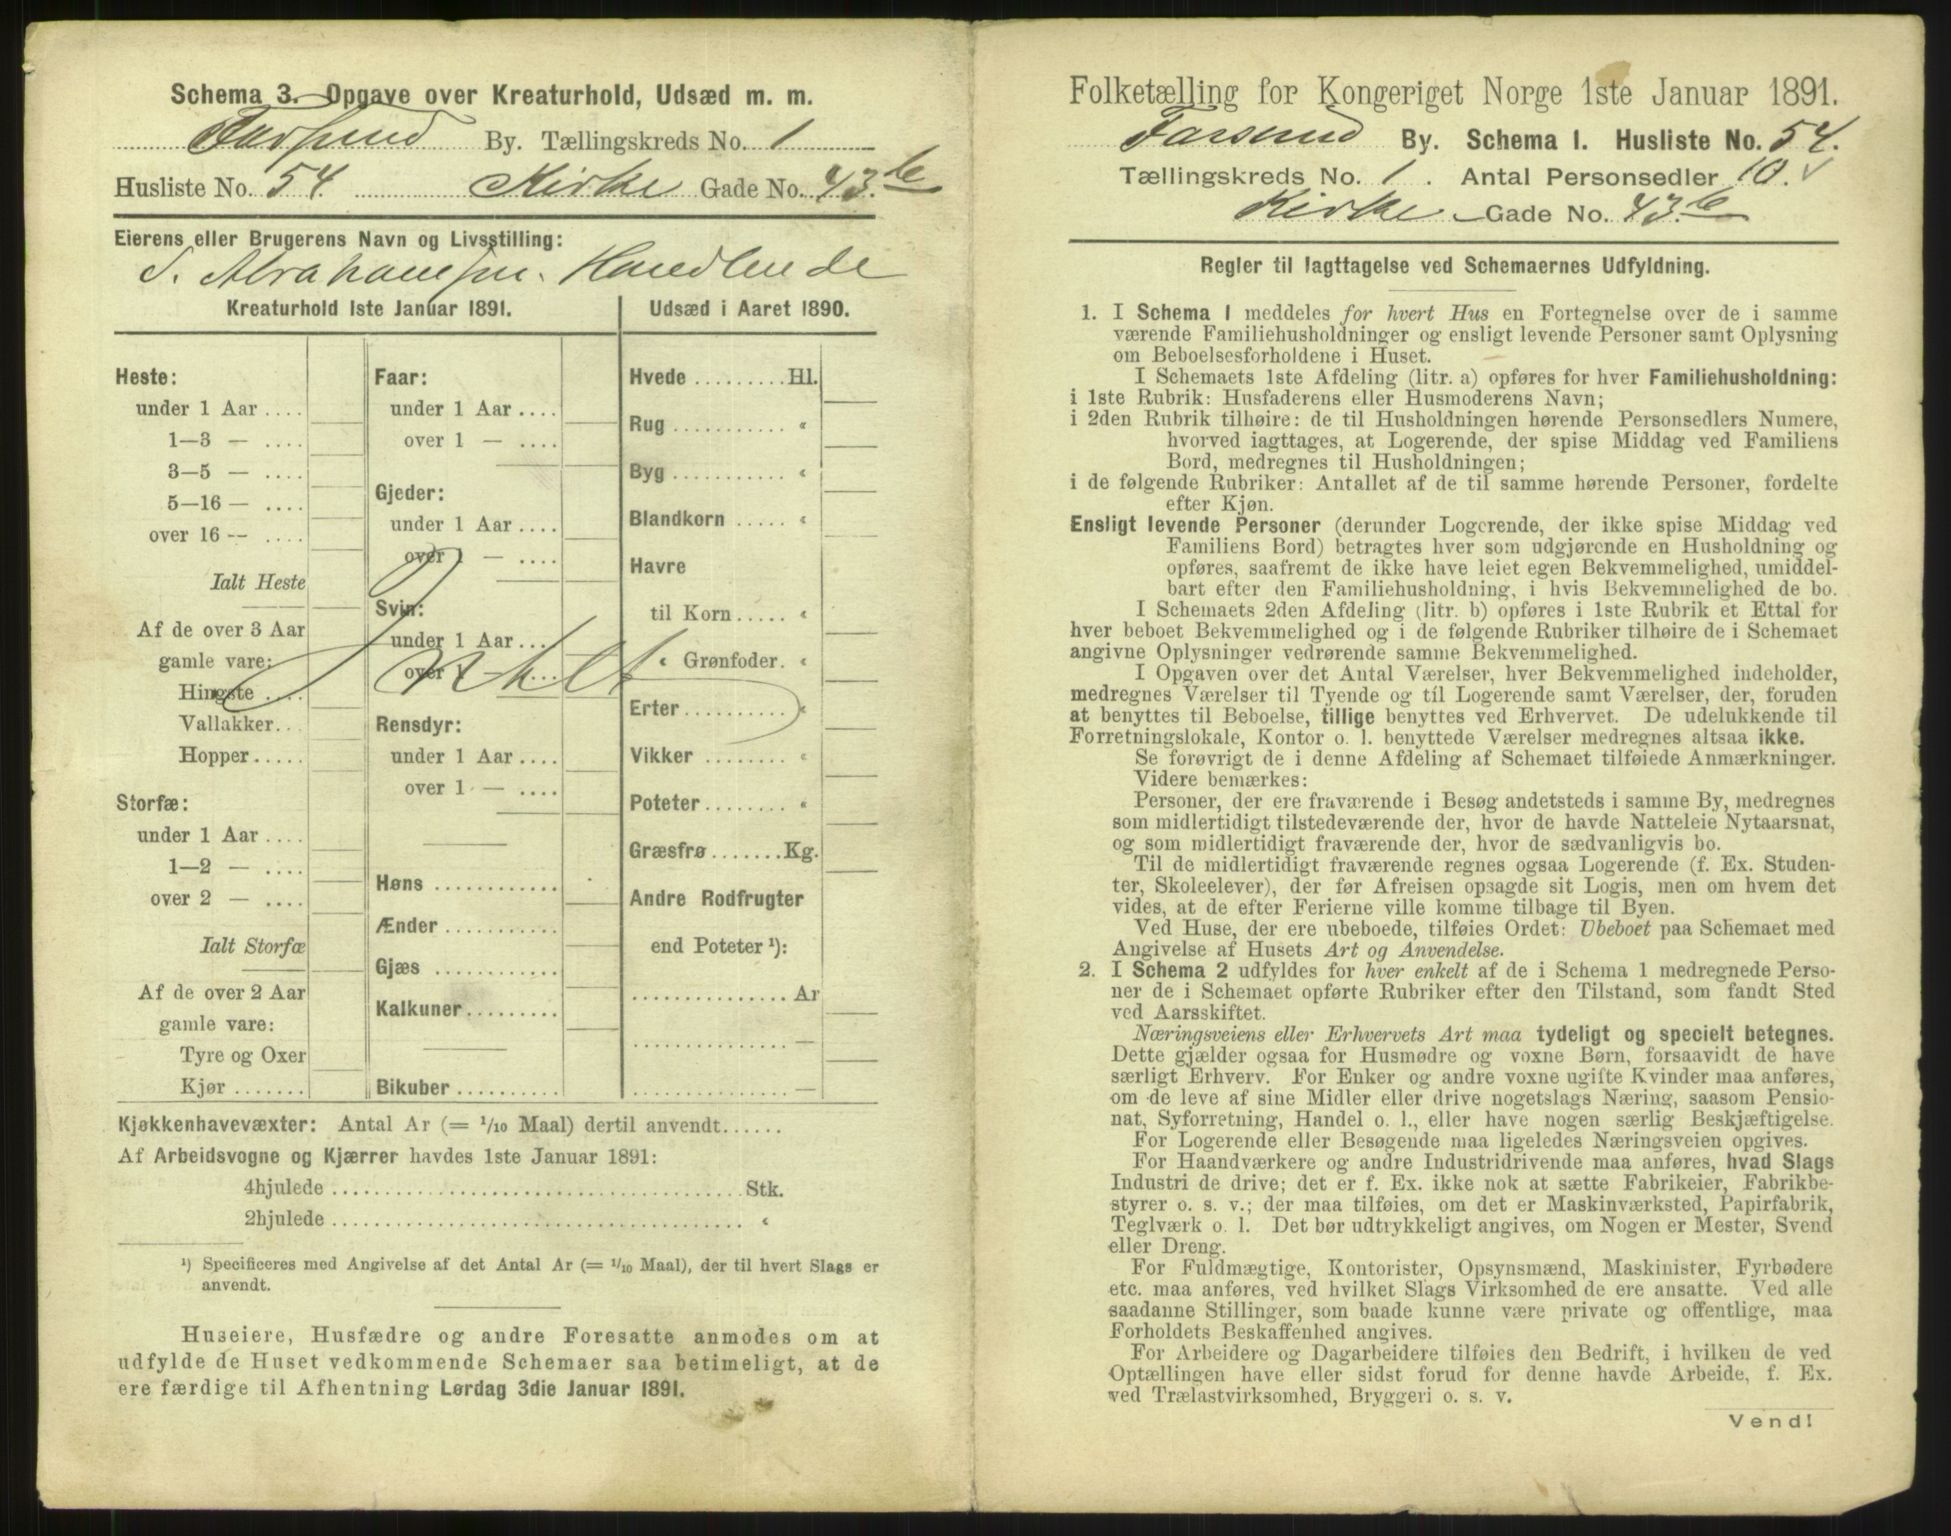 Schema 3. Opgave over Kreaturhold, Udsæd m. m.
Farsund By. Tællingskreds No. 1
Husliste No. 54 Kirke Gade No. 43.b
Eierens eller Brugerens Navn og Livsstilling:
S. Abrahamsen. Handlende
Kreaturhold 1ste Januar 1891.
Heste:
under 1 Aar ....
1—3 — ....
3—5 — ....
5-16 — ....
over 16 — ....
Ialt Heste
Af de over 3 Aar
gamle vare:
Hingste ....
Vallakker...
Hopper.....
Storfæ:
under 1 Aar ....
1—2 — ....
over 2 — ....
Ialt Storfæ
Af de over 2 Aar
gamle vare:
Tyre og Oxer
Kjør .......
Faar:
under 1 Aar ....
over 1 — ....
Gjeder:
under 1 Aar ....
over 1 — ....
Svin:
under 1 Aar ....
over 1 — ....
Rensdyr:
under 1 Aar ....
over 1 — ....
Høns ............
Ænder ...........
Gjæs ............
Kalkuner.........
Bikuber ..........
Udsæd i Aaret 1890.
Hvede .........Hl.
Rug ........... “
Byg ........... “
Blandkorn ..... “
Havre
til Korn..... “
“ Grønfoder. “
Erter .......... “
Vikker ........ “
Poteter........ “
Græsfrø.......Kg.
Andre Rodfrugter
end Poteter ¹):
............... Ar
............... —
............... —
Kjøkkenhavevæxter: Antal Ar (= 1/10 Maal) dertil anvendt......
Af Arbeidsvogne og Kjærrer havdes 1ste Januar 1891:
4hjulede ....................................... Stk.
2hjulede ....................................... “
¹) Specificeres med Angivelse af det Antal Ar (= 1/10 Maal), der til hvert Slags er
anvendt.
Huseiere, Husfædre og andre Foresatte anmodes om at
udfylde de Huset vedkommende Schemaer saa betimeligt, at de
ere færdige til Afhentning Lørdag 3die Januar 1891.
Folketælling for Kongeriget Norge 1ste Januar 1891.
Farsund By. Schema I. Husliste No. 54.
Tællingskreds No. 1. Antal Personsedler 10. ✓
Kirke Gade No. 43.b
Regler til Iagttagelse ved Schemaernes Udfyldning.
1. I Schema I meddeles for hvert Hus en Fortegnelse over de i samme
værende Familiehusholdninger og ensligt levende Personer samt Oplysning
om Beboelsesforholdene i Huset.
I Schemaets 1ste Afdeling (litr. a) opføres for hver Familiehusholdning:
i 1ste Rubrik: Husfaderens eller Husmoderens Navn;
i 2den Rubrik tilhøire: de til Husholdningen hørende Personsedlers Numere,
hvorved iagttages, at Logerende, der spise Middag ved Familiens
Bord, medregnes til Husholdningen;
i de følgende Rubriker: Antallet af de til samme hørende Personer, fordelte
efter Kjøn.
Ensligt levende Personer (derunder Logerende, der ikke spise Middag ved
Familiens Bord) betragtes hver som udgjørende en Husholdning og
opføres, saafremt de ikke have leiet egen Bekvemmelighed, umiddel-
bart efter den Familiehusholdning, i hvis Bekvemmelighed de bo.
I Schemaets 2den Afdeling (litr. b) opføres i 1ste Rubrik et Ettal for
hver beboet Bekvemmelighed og i de følgende Rubriker tilhøire de i Schemaet
angivne Oplysninger vedrørende samme Bekvemmelighed.
I Opgaven over det Antal Værelser, hver Bekvemmelighed indeholder,
medregnes Værelser til Tyende og til Logerende samt Værelser, der, foruden
at benyttes til Beboelse, tillige benyttes ved Erhvervet. De udelukkende til
Forretningslokale, Kontor o. l. benyttede Værelser medregnes altsaa ikke.
Se forøvrigt de i denne Afdeling af Schemaet tilføiede Anmærkninger.
Videre bemærkes:
Personer, der ere fraværende i Besøg andetsteds i samme By, medregnes
som midlertidigt tilstedeværende der, hvor de havde Natteleie Nytaarsnat,
og som midlertidigt fraværende der, hvor de sædvanligvis bo.
Til de midlertidigt fraværende regnes ogsaa Logerende (f. Ex. Studen-
ter, Skoleelever), der før Afreisen opsagde sit Logis, men om hvem det
vides, at de efter Ferierne ville komme tilbage til Byen.
Ved Huse, der ere ubeboede, tilføies Ordet: Ubeboet paa Schemaet med
Angivelse af Husets Art og Anvendelse.
2. I Schema 2 udfyldes for hver enkelt af de i Schema 1 medregnede Perso-
ner de i Schemaet opførte Rubriker efter den Tilstand, som fandt Sted
ved Aarsskiftet.
Næringsveiens eller Erhvervets Art maa tydeligt og specielt betegnes.
Dette gjælder ogsaa for Husmødre og voxne Børn, forsaavidt de have
særligt Erhverv. For Enker og andre voxne ugifte Kvinder maa anføres,
om de leve af sine Midler eller drive nogetslags Næring, saasom Pensio-
nat, Syforretning, Handel o. l., eller have nogen særlig Beskjæftigelse.
For Logerende eller Besøgende maa ligeledes Næringsveien opgives.
For Haandværkere og andre Industridrivende maa anføres, hvad Slags
Industri de drive; det er f. Ex. ikke nok at sætte Fabrikeier, Fabrikbe-
styrer o. s. v.; der maa tilføies, om det er Maskinværksted, Papirfabrik,
Teglværk o. l. Det bør udtrykkeligt angives, om Nogen er Mester, Svend
eller Dreng.
For Fuldmægtige, Kontorister, Opsynsmænd, Maskinister, Fyrbødere
etc. maa anføres, ved hvilket Slags Virksomhed de ere ansatte. Ved alle
saadanne Stillinger, som baade kunne være private og offentlige, maa
Forholdets Beskaffenhed angives.
For Arbeidere og Dagarbeidere tilføies den Bedrift, i hvilken de ved
Optællingen have eller sidst forud for denne havde Arbeide, f. Ex.
ved Trælastvirksomhed, Bryggeri o. s. v.
Vend!